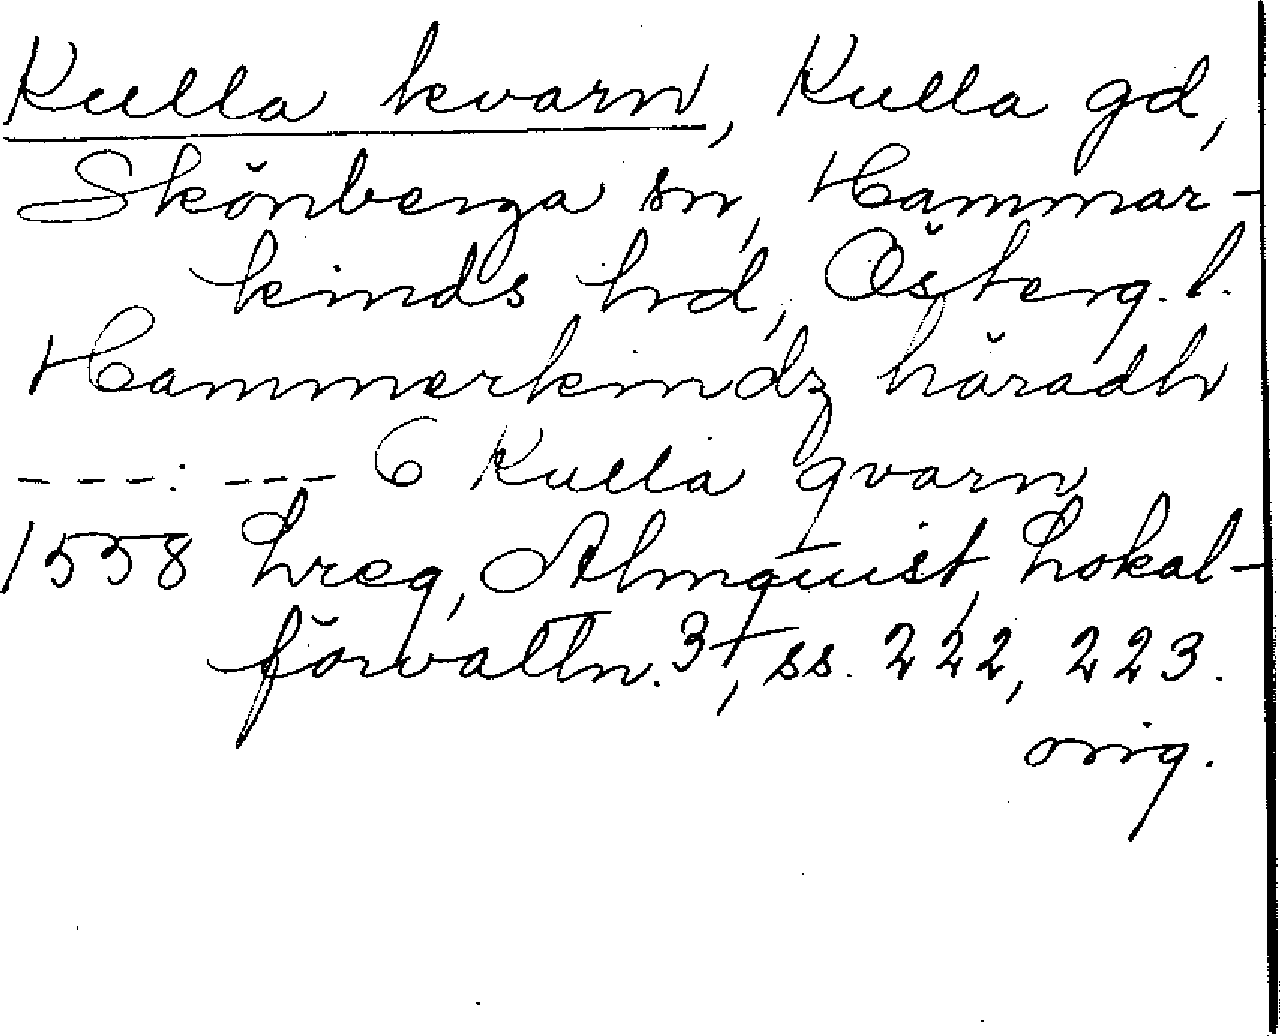 Kulla kvarn, Kulla gd,
Skönberga sn, Hammar-
kinds hd, Österg. l.
Hammerkindz häradh
---:--- 6 Kulla qvarn
1558 hreg, Almquist, Lokal-
förvaltn. 3†, ss. 222, 223.
orig.